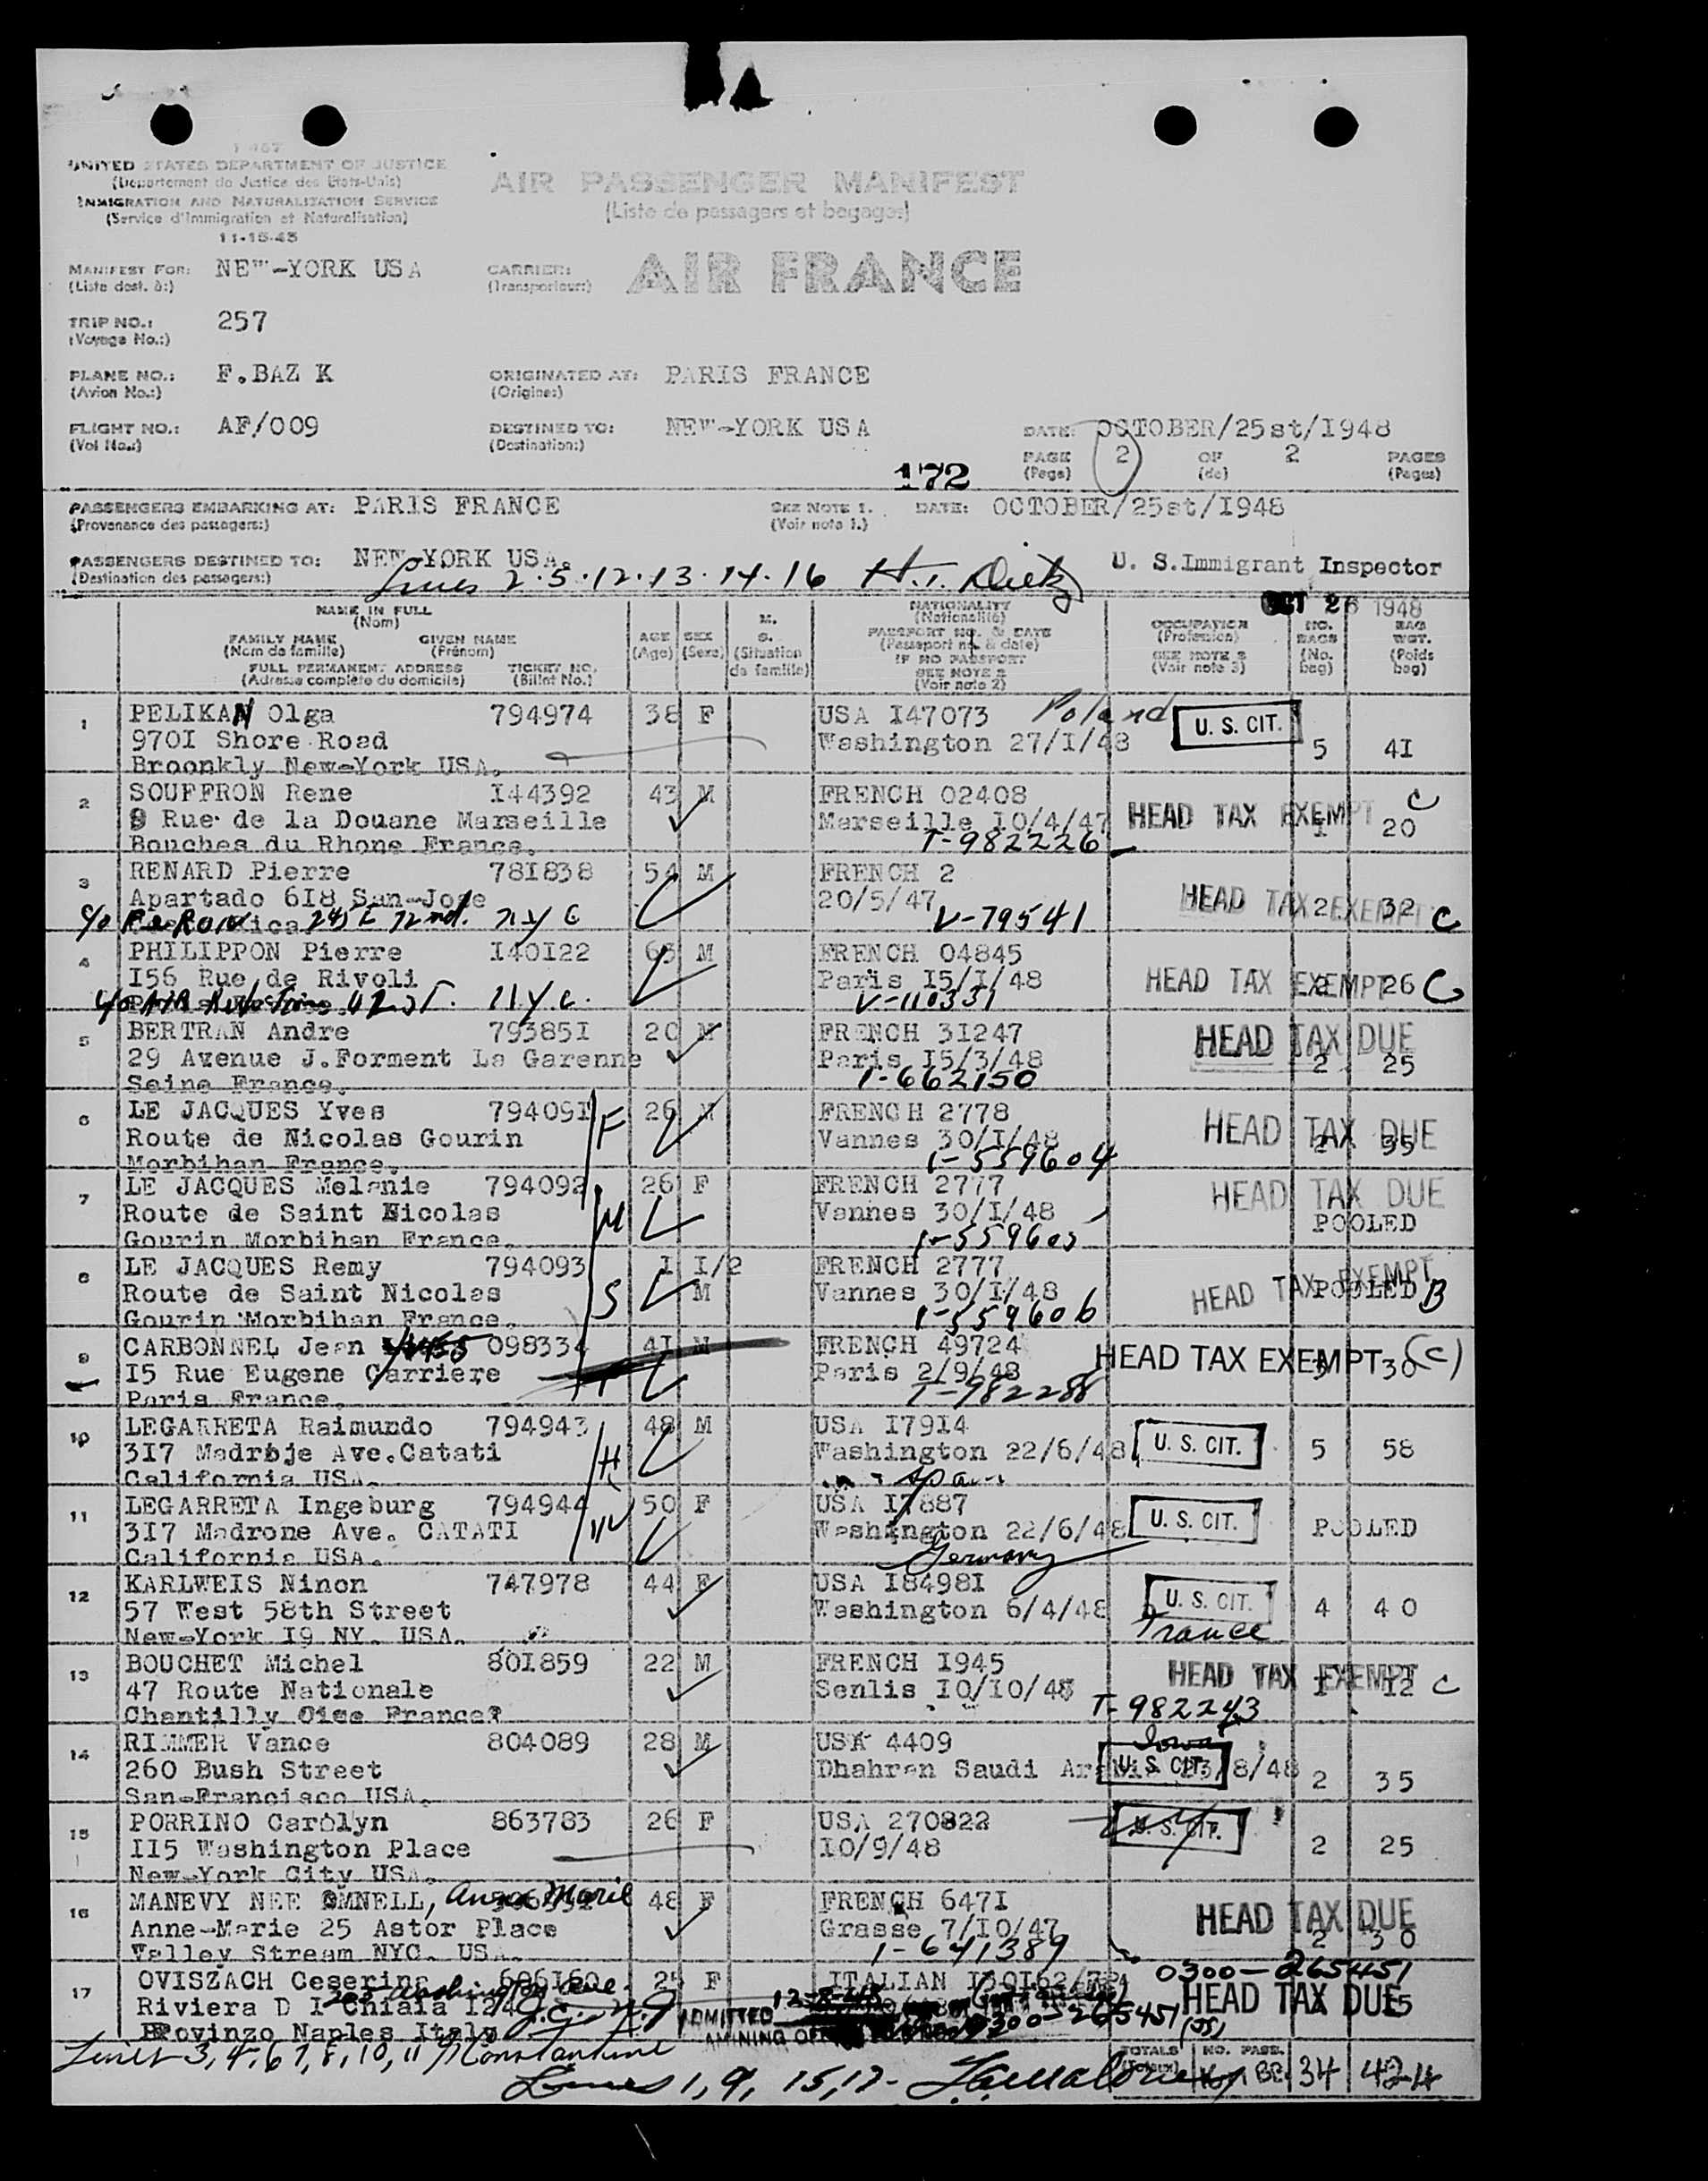 I-467
UNITED STATES DEPARTMENT OF JUSTICE
(Departement de Justice des Etats-Unis)
IMMIGRATION AND NATURALIZATION SERVICE
(Service d'Immigration et Naturalisation)
11-15-45
AIR PASSENGER MANIFEST
(Liste de passagers et bagages)
MANIFEST FOR: NEW-YORK USA
(Liste dest. à:)
CARRIER: AIR FRANCE
(Transporteur:)
TRIP NO.: 257
(Voyage No.:)
PLANE NO.: F.BAZ K
(Avion No.:)
ORIGINATED AT: PARIS FRANCE
(Origine:)
FLIGHT NO.: AF/009
(Vol No.:)
DESTINED TO: NEW-YORK USA
(Destination:)
DATE: OCTOBER/25st/I948
PAGE 2 OF 2 PAGES
(Page) (de) (Pages)
172
PASSENGERS EMBARKING AT: PARIS FRANCE
(Provenance des passagers:)
SEE NOTE 1.
(Voir note 1.)
DATE: OCTOBER/25st/I948
PASSENGERS DESTINED TO: NEW-YORK USA.
(Destination des passagers:)
Lines 2.5.12.13.14.16 H.I. Dietz
U. S. Immigrant Inspector
OCT 26 1948
NAME IN FULL
(Nom)
FAMILY NAME GIVEN NAME
(Nom de famille) (Prénom)
FULL PERMANENT ADDRESS TICKET NO.
(Adresse complète du domicile) (Billet No.)
AGE
(Age)
SEX
(Sexe)
M.
S.
(Situation
de famille)
NATIONALITY
(Nationalité)
PASSPORT NO. & DATE
(Passeport no. & date)
IF NO PASSPORT
SEE NOTE 2
(Voir note 2)
OCCUPATION
(Profession)
SEE NOTE 3
(Voir note 3)
NO.
BAGS
(No.
bag)
BAG
WGT.
(Poids
bag)
1 PELIKAN Olga 794974 38 F USA I47073 Poland U. S. CIT.
970I Shore Road Washington 27/I/48 5 4I
Broonkly New-York USA.
2 SOUFFRON Rene I44392 43 M FRENCH 02408 HEAD TAX EXEMPT C
9 Rue de la Douane Marseille Marseille I0/4/47 1 20
Bouches du Rhone France. T-982226
3 RENARD Pierre 78I838 54 M FRENCH 2 HEAD TAX EXEMPT C
Apartado 6I8 San-Jose 20/5/47 2 32
c/o 245 E 72nd. NYC V-79541
4 PHILIPPON Pierre I40I22 63 M FRENCH 04845 HEAD TAX EXEMPT C
I56 Rue de Rivoli Paris I5/I/48 2 26
c/o NYC. V-110331
5 BERTRAN Andre 79385I 20 M FRENCH 3I247 HEAD TAX DUE
29 Avenue J.Forment La Garenne Paris I5/3/48 2 25
Seine France. I-662150
6 LE JACQUES Yves 79409I F 26 M FRENCH 2778 HEAD TAX DUE
Route de Nicolas Gourin Vannes 30/I/48 2 35
Morbihan France. I-559604
7 LE JACQUES Melanie 794092 M 26 F FRENCH 2777 HEAD TAX DUE
Route de Saint Nicolas Vannes 30/I/48 POOLED
Gourin Morbihan France. I-559605
8 LE JACQUES Remy 794093 S I I/2 FRENCH 2777 HEAD TAX EXEMPT
Route de Saint Nicolas M Vannes 30/I/48 POOLED B
Gourin Morbihan France. I-559606
9 CARBONNEL Jean 098334 4I M FRENCH 49724 HEAD TAX EXEMPT (C)
I5 Rue Eugene Carriere Paris 2/9/48 3 30
Paris France. T-982288
10 LEGARRETA Raimundo 794943 H 48 M USA I79I4 U. S. CIT.
3I7 Madroje Ave.Catati Washington 22/6/48 5 58
California USA. Spain
11 LEGARRETA Ingeburg 794944 W 50 F USA I7887 U. S. CIT.
3I7 Madrone Ave. CATATI Washington 22/6/48 POOLED
California USA. Germany
12 KARLWEIS Ninon 747978 44 F USA I8498I U. S. CIT.
57 West 58th Street Washington 6/4/48 4 40
New-York I9 NY. USA. France
13 BOUCHET Michel 80I859 22 M FRENCH I945 HEAD TAX EXEMPT C
47 Route Nationale Senlis I0/I0/48 1 I2
Chantilly Oise France? T-982243
14 RIMMER Vance 804089 28 M USA 4409 Iowa U. S. CIT.
260 Bush Street Dhahran Saudi Arabia 23/8/48 2 35
San-Francisco USA.
15 PORRINO Carolyn 863783 26 F USA 270822 U. S. CIT.
II5 Washington Place I0/9/48 2 25
New-York City USA.
16 MANEVY NEE OMNELL, Anna Marie 48 F FRENCH 647I HEAD TAX DUE
Anne-Marie 25 Astor Place Grasse 7/I0/47 2 30
Valley Stream NYC. USA. I-641389
17 OVISZACH Ceserina 606I60 25 F ITALIAN 0300-265451
Riviera D I Chiaia I24 Washington Ave. HEAD TAX DUE
Provinzo Naples Italy J.C. N.J. ADMITTED 12-8-48 0300-265451
Lines 3,4,6,7,8,10,11 Constantine
Lines 1, 9, 15, 17-
TOTALS NO. PASS. 34 424
(Totaux)